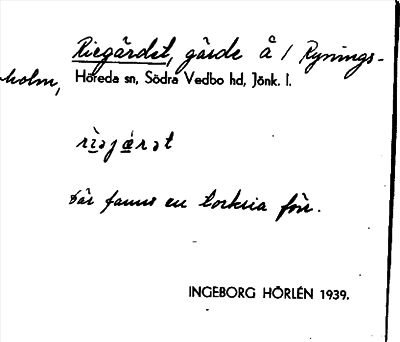 Riegärdet, gärde å 1 Rynings-
holm,
Höreda sn, Södra Vedbo hd, Jönk. l.
rìəjæ̀rət
där fanns en torkria förr.
INGEBORG HÖRLÉN 1939.